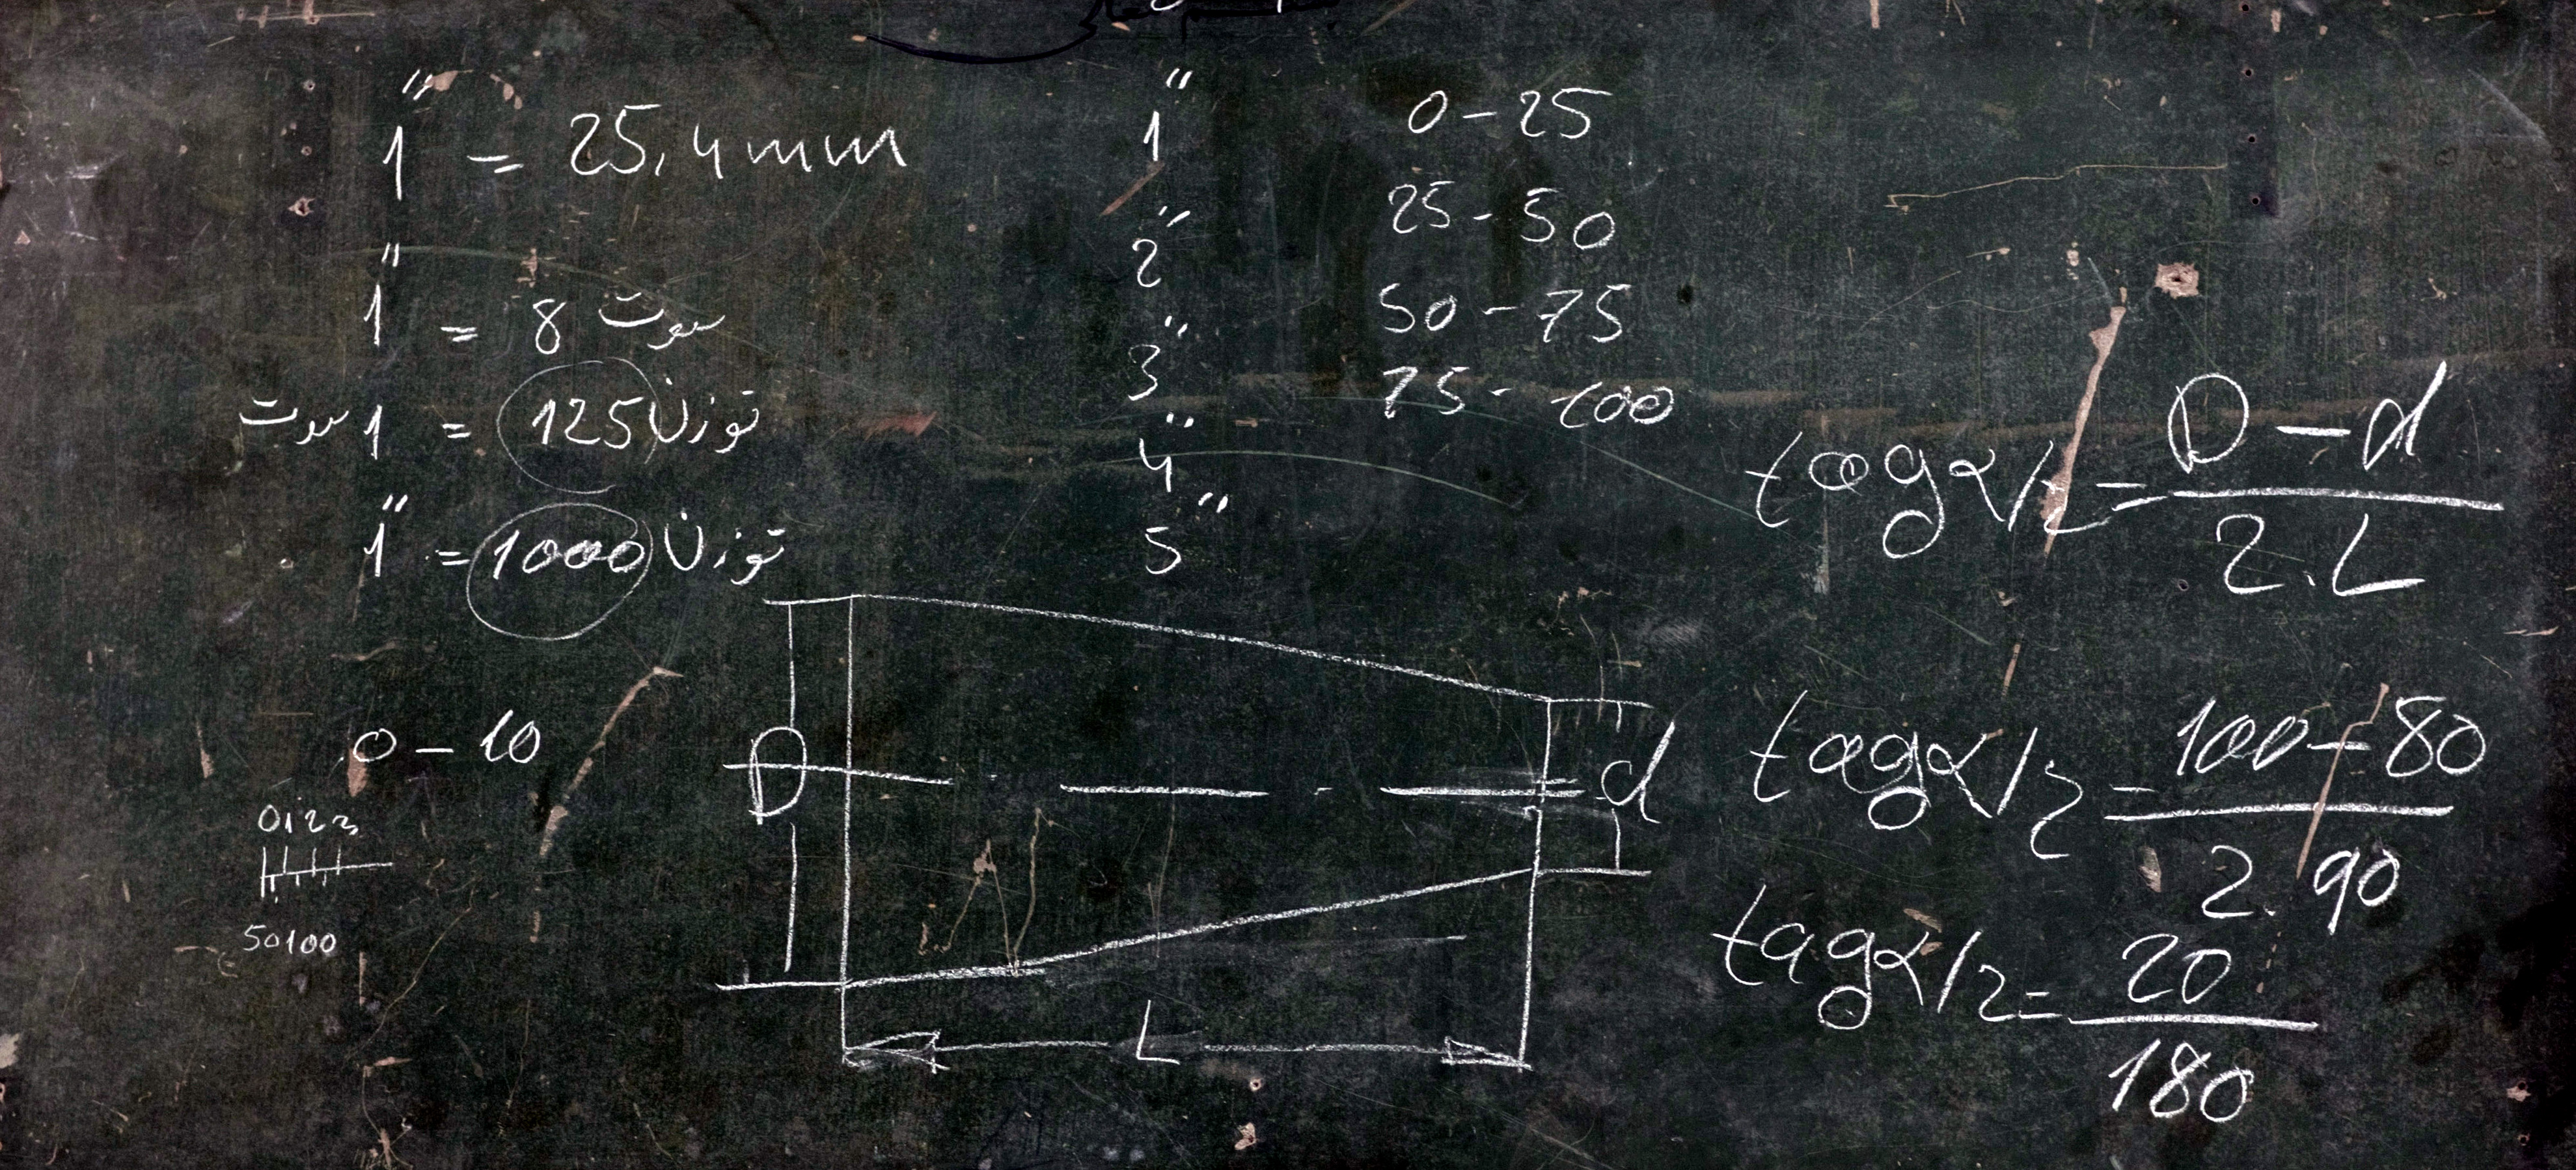 1" = 25,4mm
1" = 8 سوت
سوت 1 = 125 توزن
1" = 1000 توزن
0 - 10
0123
50100
1"
2"
3"
4"
5"
0 - 25
25 - 50
50 - 75
75 - 100
D
d
L
tag α/2 = D - d / 2.L
tag α/2 = 100 - 80 / 2.90
tag α/2 = 20 / 180